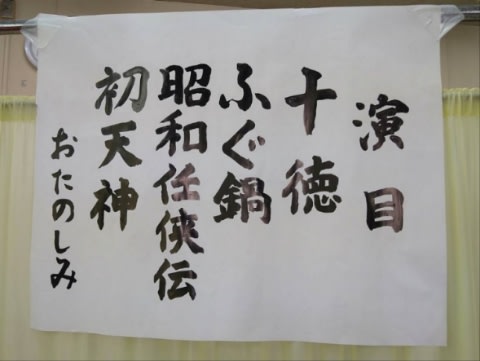 演目
十徳
ふぐ鍋
昭和任侠伝
初天神
おたのしみ